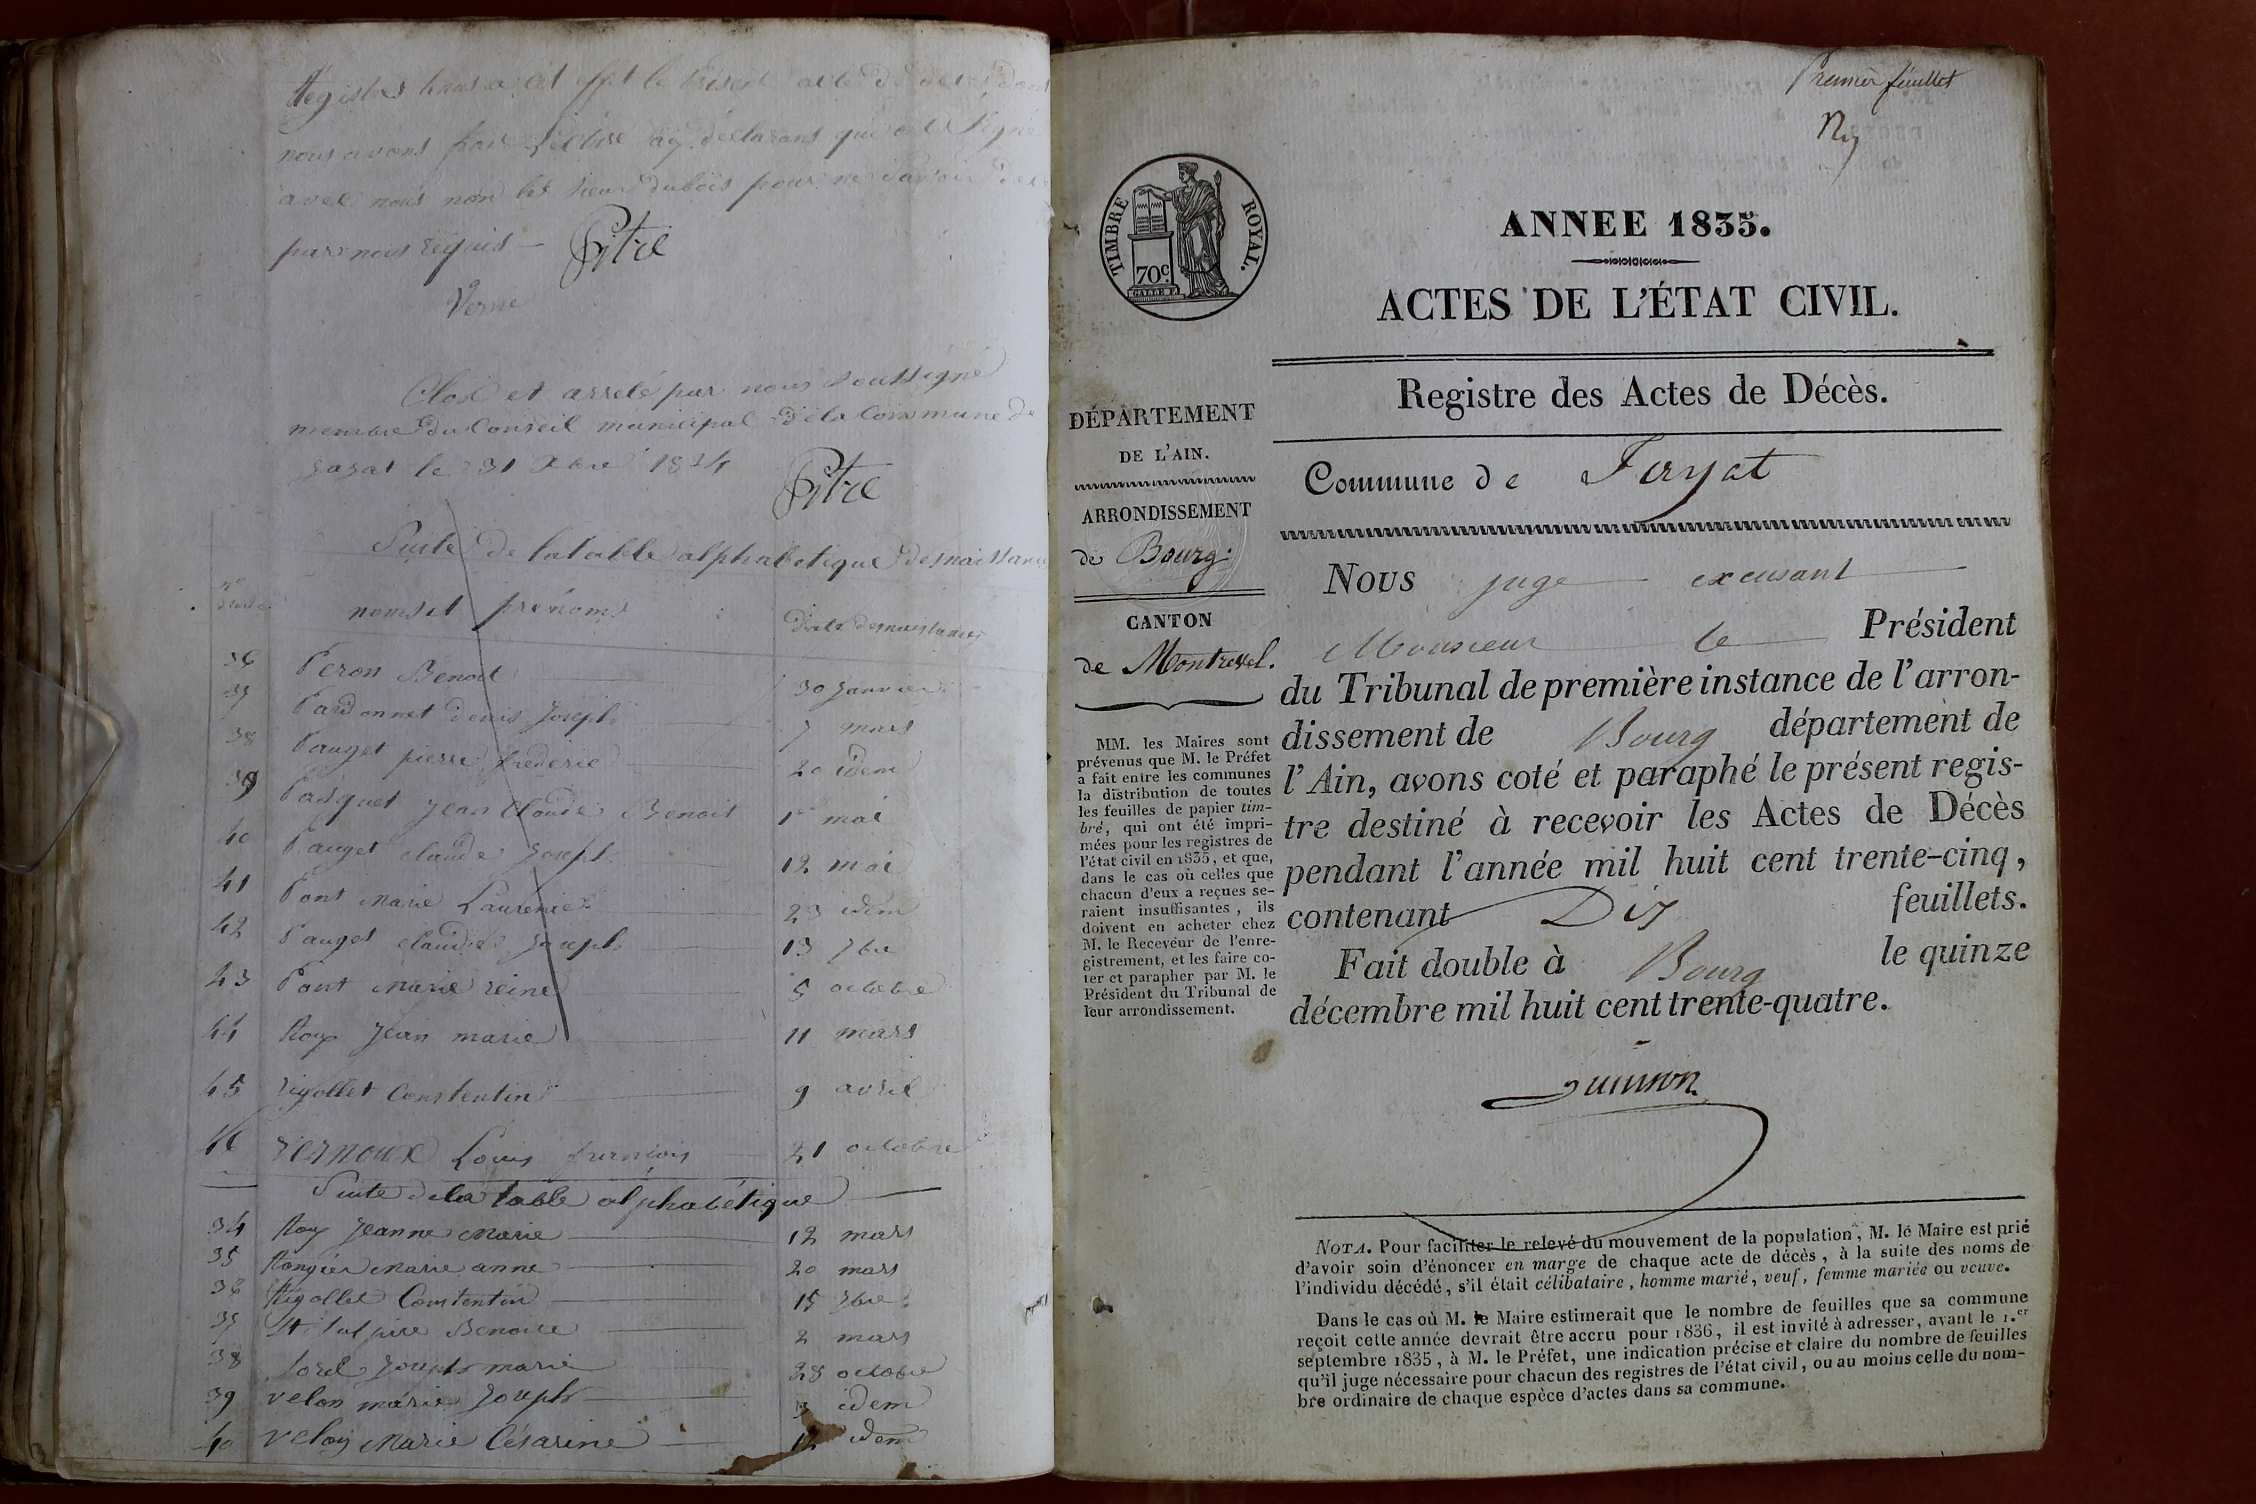 Registres tenus a cet effet le present acte de deces dont
nous avons fait lecture aux déclarans qui ont Signé
avec nous non le Sieur dubois pour ne Savoir de ce
par nous requis — Pitre
Verne
Clos et arreté par nous Soussigné
membre du Conseil municipal de la Commune de
jayat le 31 Xbre 1834
Pitre
Suite de la table alphabetique des naissances
noms et prénoms
date des naissances
36 Peron Benoit 30 janvier
37 Pardonnet denis Joseph 7 mars
38 Pauget pierre frederic 20 idem
39 Pasquet Jean Claude Benoit 1er mai
40 Pauget claude Joseph 12 mai
41 Pont Marie Laurence 23 idem
42 Pauget claude Joseph 13 7bre
43 Pont Marie reine 5 octobre
44 Roy Jean marie 11 mars
45 rigollet Constentin 9 avril
46 vernoux Louis françois 21 octobre
Suite de la table alphabétique
34 Roy Jeanne Marie 12 mars
35 Rongier Marie anne 20 mars
36 Rigollet Constentin 15 7bre
37 St Sulpice Benoite 2 mars
38 Sorel Joseph marie 28 octobre
39 velon marie Joseph 3 idem
40 velon Marie Césarine idem
Premier feuillet
TIMBRE ROYAL.
70c.
ANNEE 1835.
ACTES DE L'ÉTAT CIVIL.
Registre des Actes de Décès.
Commune de Jayat
DÉPARTEMENT
DE L'AIN.
ARRONDISSEMENT
de Bourg.
CANTON
de Montrevel.
MM. les Maires sont
prévenus que M. le Préfet
a fait entre les communes
la distribution de toutes
les feuilles de papier tim-
bré, qui ont été impri-
mées pour les registres de
l'état civil en 1835, et que,
dans le cas où celles que
chacun d'eux a reçues se-
raient insuffisantes, ils
doivent en acheter chez
M. le Receveur de l'enre-
gistrement, et les faire co-
ter et parapher par M. le
Président du Tribunal de
leur arrondissement.
Nous juge excusant
Monsieur le Président
du Tribunal de première instance de l'arron-
dissement de Bourg département de
l'Ain, avons coté et paraphé le présent regis-
tre destiné à recevoir les Actes de Décès
pendant l'année mil huit cent trente-cinq,
contenant Dix feuillets.
Fait double à Bourg le quinze
décembre mil huit cent trente-quatre.
NOTA. Pour faciliter le relevé du mouvement de la population, M. le Maire est prié
d'avoir soin d'énoncer en marge de chaque acte de décès, à la suite des noms de
l'individu décédé, s'il était célibataire, homme marié, veuf, femme mariée ou veuve.
Dans le cas où M. le Maire estimerait que le nombre de feuilles que sa commune
reçoit cette année devrait être accru pour 1836, il est invité à adresser, avant le 1.er
septembre 1835, à M. le Préfet, une indication précise et claire du nombre de feuilles
qu'il juge nécessaire pour chacun des registres de l'état civil, ou au moins celle du nom-
bre ordinaire de chaque espèce d'actes dans sa commune.